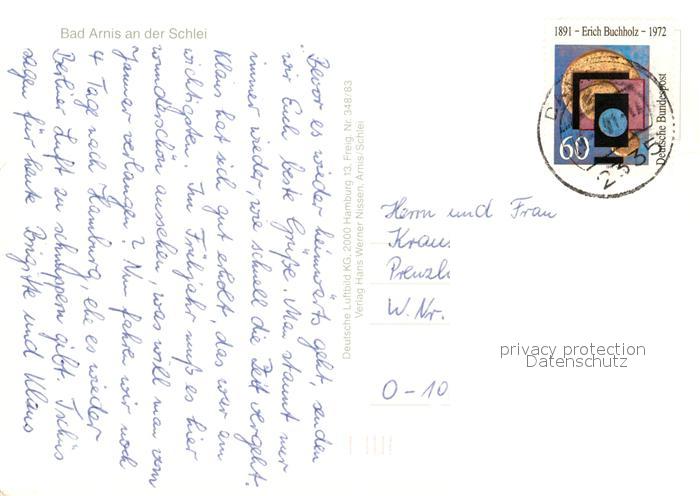 Bad Arnis an der Schlei
Bevor es wieder heimwärts geht, senden
wir Euch beste Grüße. Man staunt nur
immer wieder, wie schnell die Zeit vergeht.
Klaus hat sich gut erholt, das war am
wichtigsten. Im Frühjahr muß es hier
wunderschön aussehen, was will man vom
Januar verlangen? Nun fahren wir noch
4 Tage nach Hamburg, ehe es wieder
Berliner Luft zu schnuppern gibt. Tschüs
sagen für heute Brigitte und Klaus
Deutsche Luftbild KG, 2000 Hamburg 13, Freig. Nr. 348/83
Verlag Hans Werner Nissen, Arnis/Schlei
1891 – Erich Buchholz – 1972
60
Deutsche Bundespost
2335
Herrn und Frau
Kraus
Prenzl
W.Nr.
O-10
privacy protection
Datenschutz